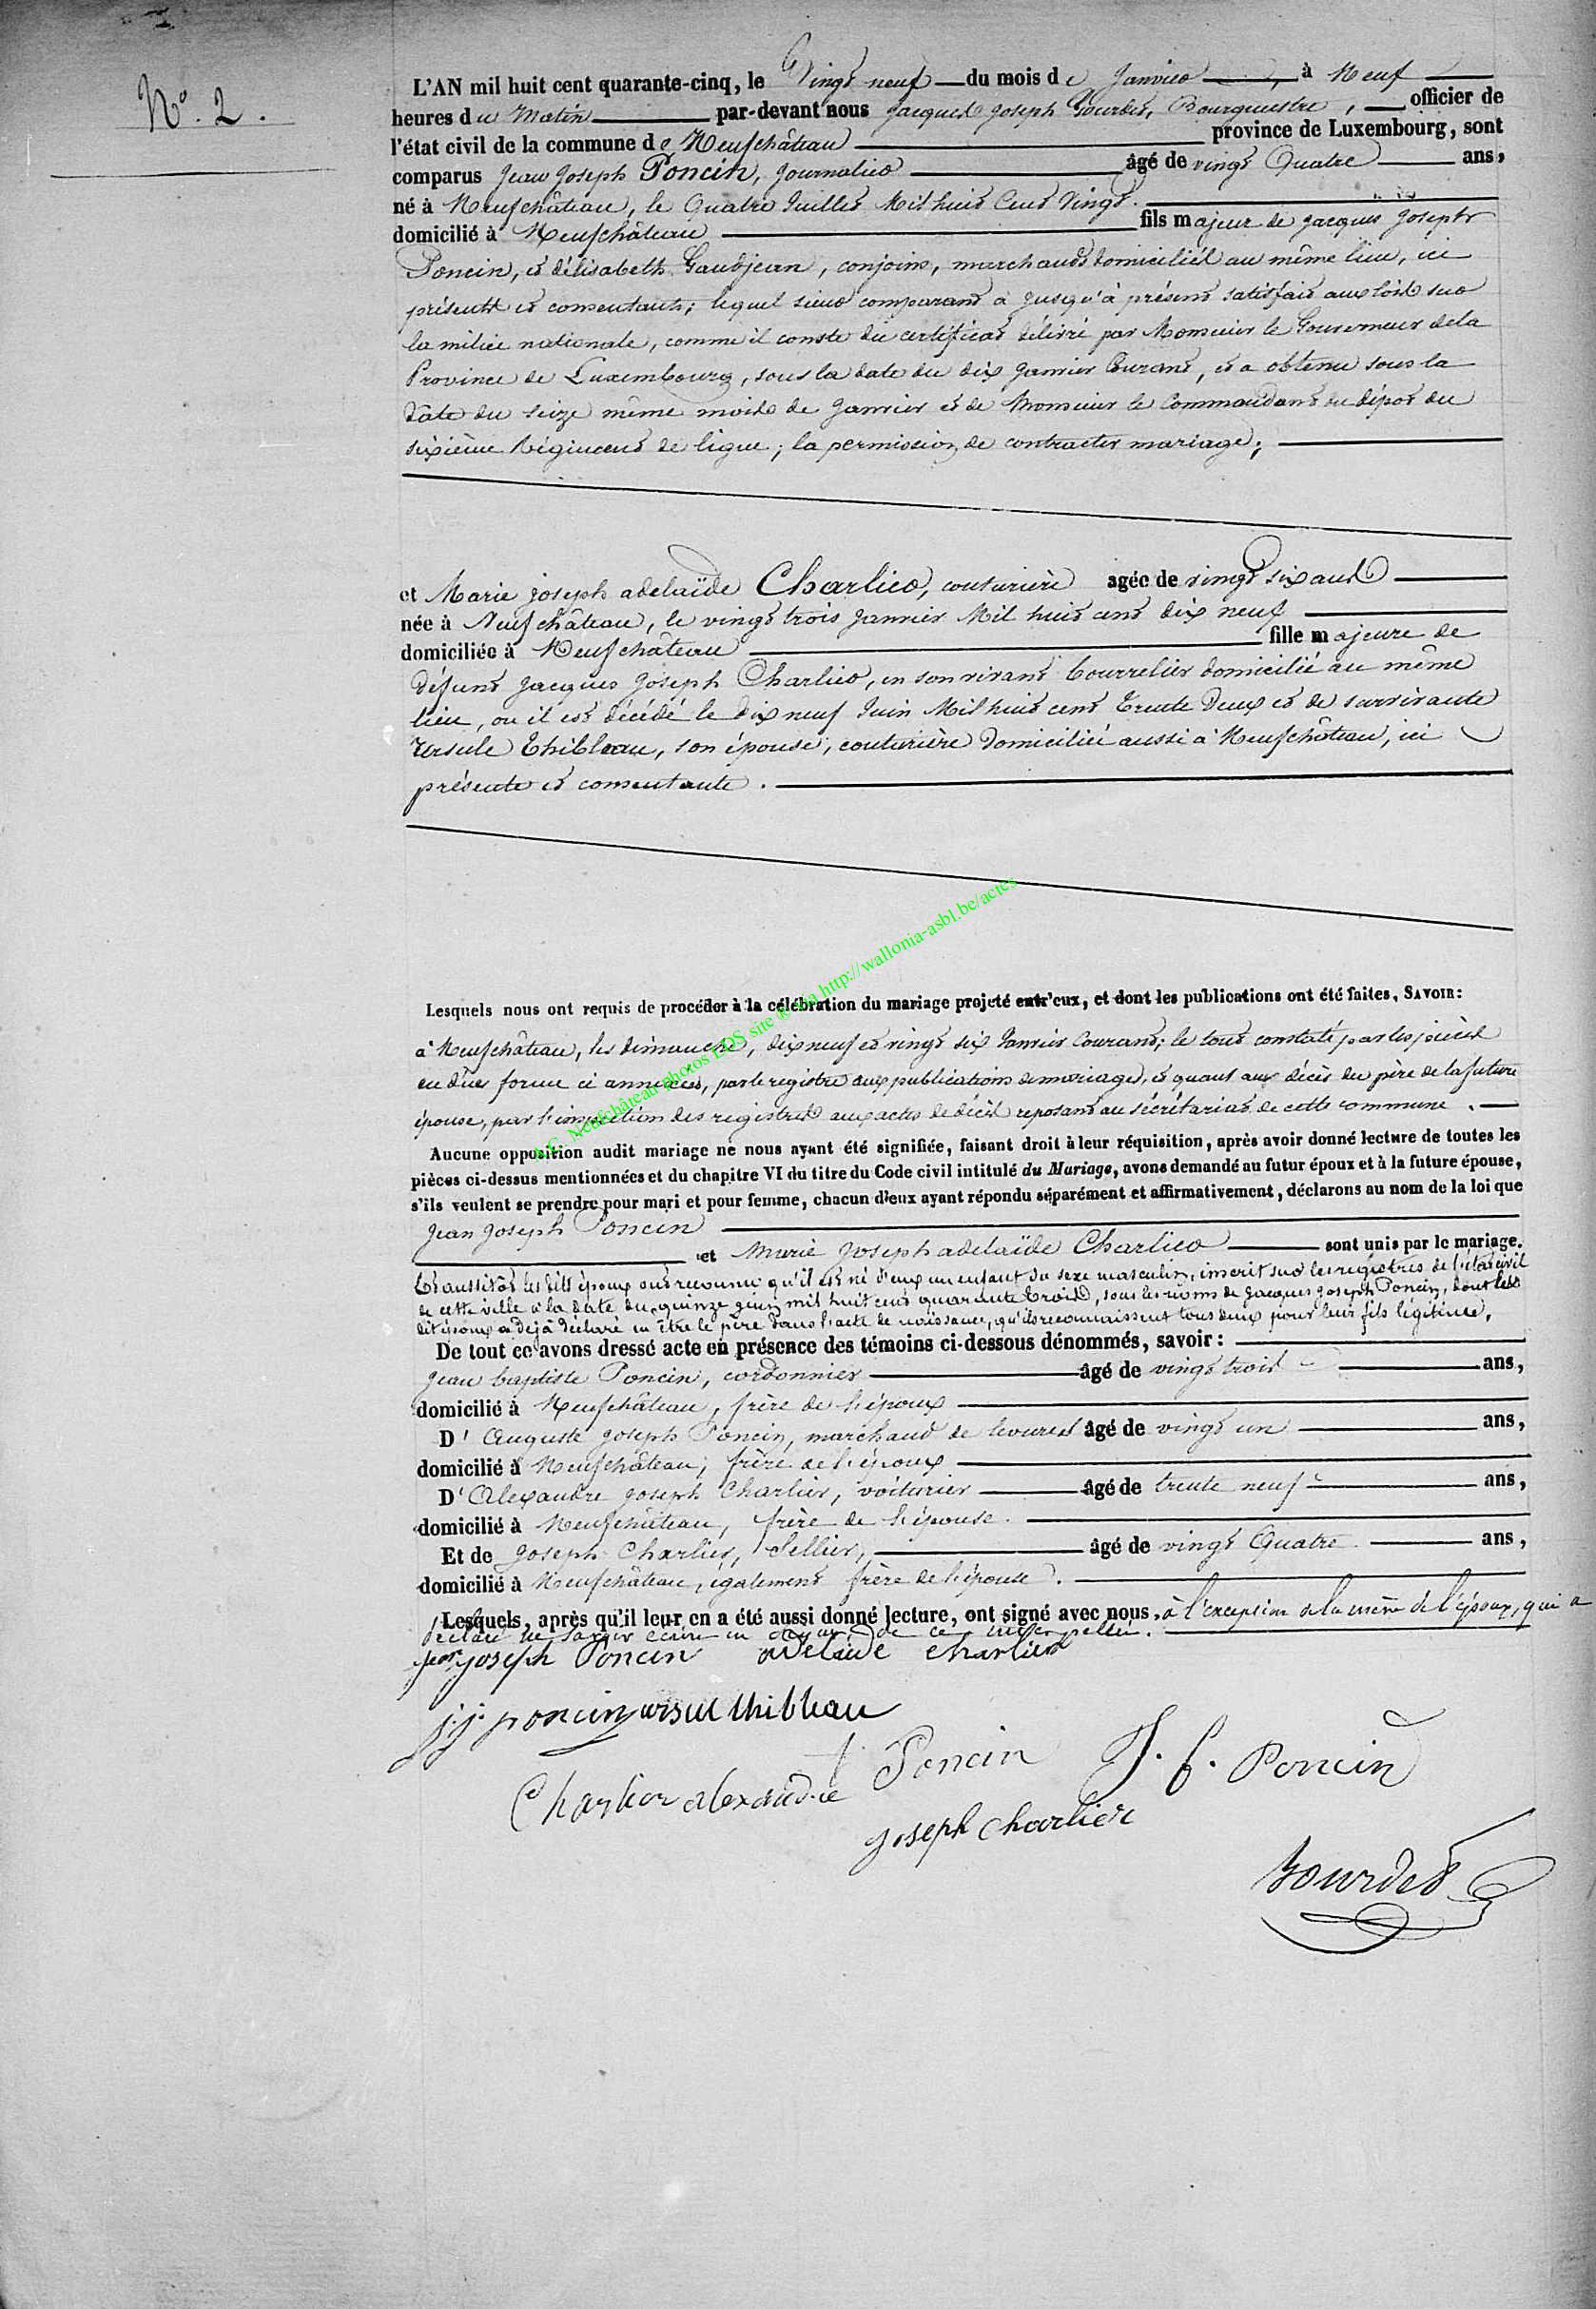 N° 2.
L'AN mil huit cent quarante-cinq, le Vingt neuf du mois de Janvier, à Neuf
heures du Matin par-devant nous Jacques Joseph Bourdes, Bourguestre, officier de
l'état civil de la commune de Neufchâteau province de Luxembourg, sont
comparus Jean Joseph Poncin, journalier âgé de vingt Quatre ans,
né à Neufchâteau, le Quatre Juillet Mil huit Cent Vingt.
domicilié à Neufchâteau fils majeur de jacques joseph
Poncin, et d'élisabeth Gaudjean, conjoins, marchands domiciliés au même lieu, ici
présents et consentants; lequel sieur comparant a jusqu'à présent satisfait aux lois sur
la milice nationale, comme il conste du certificat délivré par Monsieur le Gouverneur de la
Province de Luxembourg, sous la date du dix janvier Courant, et a obtenu sous la
date du seize même mois de janvier et de Monsieur le Commandant du dépot du
sixième Régiment de ligne; la permission de contracter mariage;
et Marie joseph adelaïde Charlier, couturière agée de vingt six ans
née à Neufchâteau, le vingt trois janvier Mil huit cent dix neuf
domiciliée à Neufchâteau fille majeure de
défunt jacques joseph Charlier, en son vivant bourrelier domicilié au même
lieu, ou il est décédé le dix neuf Juin Mil huit cent Trente Deux et de survivante
Ursule Thibleau, son épouse, couturière domiciliée aussi à Neufchâteau, ici
présente et consentante.
Lesquels nous ont requis de procéder à la célébration du mariage projeté entr'eux, et dont les publications ont été faites, SAVOIR:
à Neufchâteau, les dimanche, dix neuf et vingt six Janvier Courant; le tout constaté par les pièces
en dûes forme ci annexées, par le registre aux publications de mariages, et quant aux décès du père de la future
épouse, par l'inspection des registres aux actes de décès reposant au sécrétariat de cette commune.
Aucune opposition audit mariage ne nous ayant été signifiée, faisant droit à leur réquisition, après avoir donné lecture de toutes les
pièces ci-dessus mentionnées et du chapitre VI du titre du Code civil intitulé du Mariage, avons demandé au futur époux et à la future épouse,
s'ils veulent se prendre pour mari et pour femme, chacun d'eux ayant répondu séparément et affirmativement, déclarons au nom de la loi que
Jean joseph Poncin
et Marie joseph adelaïde Charlier sont unis par le mariage.
Et aussitôt les dits époux ont reconnu qu'il est né d'eux un enfant du sexe masculin, inscrit sur les registres de l'état civil
de cette ville à la date du quinze juin mil huit cent quarante trois, sous les noms de jacques joseph Poncin, dont le
dit époux a déjà déclaré en être le père dans l'acte de naissance, qu'ils reconnaissent tous deux pour leur fils légitime.
De tout ce avons dressé acte en présence des témoins ci-dessous dénommés, savoir:
jean baptiste Poncin, cordonnier âgé de vingt trois ans,
domicilié à Neufchâteau, frère de l'époux
D' Auguste joseph Poncin, marchand de levures âgé de vingt un ans,
domicilié à Neufchâteau, frère de l'époux
D' Alexandre joseph Charlier, voiturier âgé de trente neuf ans,
domicilié à Neufchâteau, frère de l'épouse.
Et de joseph Charlier, Sellier, âgé de vingt Quatre ans,
domicilié à Neufchâteau, également frère de l'épouse.
Lesquels, après qu'il leur en a été aussi donné lecture, ont signé avec nous, à l'exception de la mère de l'époux, qui a
déclaré ne savoir écrire en ayant de ce interpellée.
jean joseph Poncin adelaïde Charlier
j.j. poncin ursul thibleau
Charlier alexandre Poncin J. B. Poncin
joseph charlier
Bourdes
A.C. Neufchâteau photos LDS site © via http://wallonia-asbl.be/actes